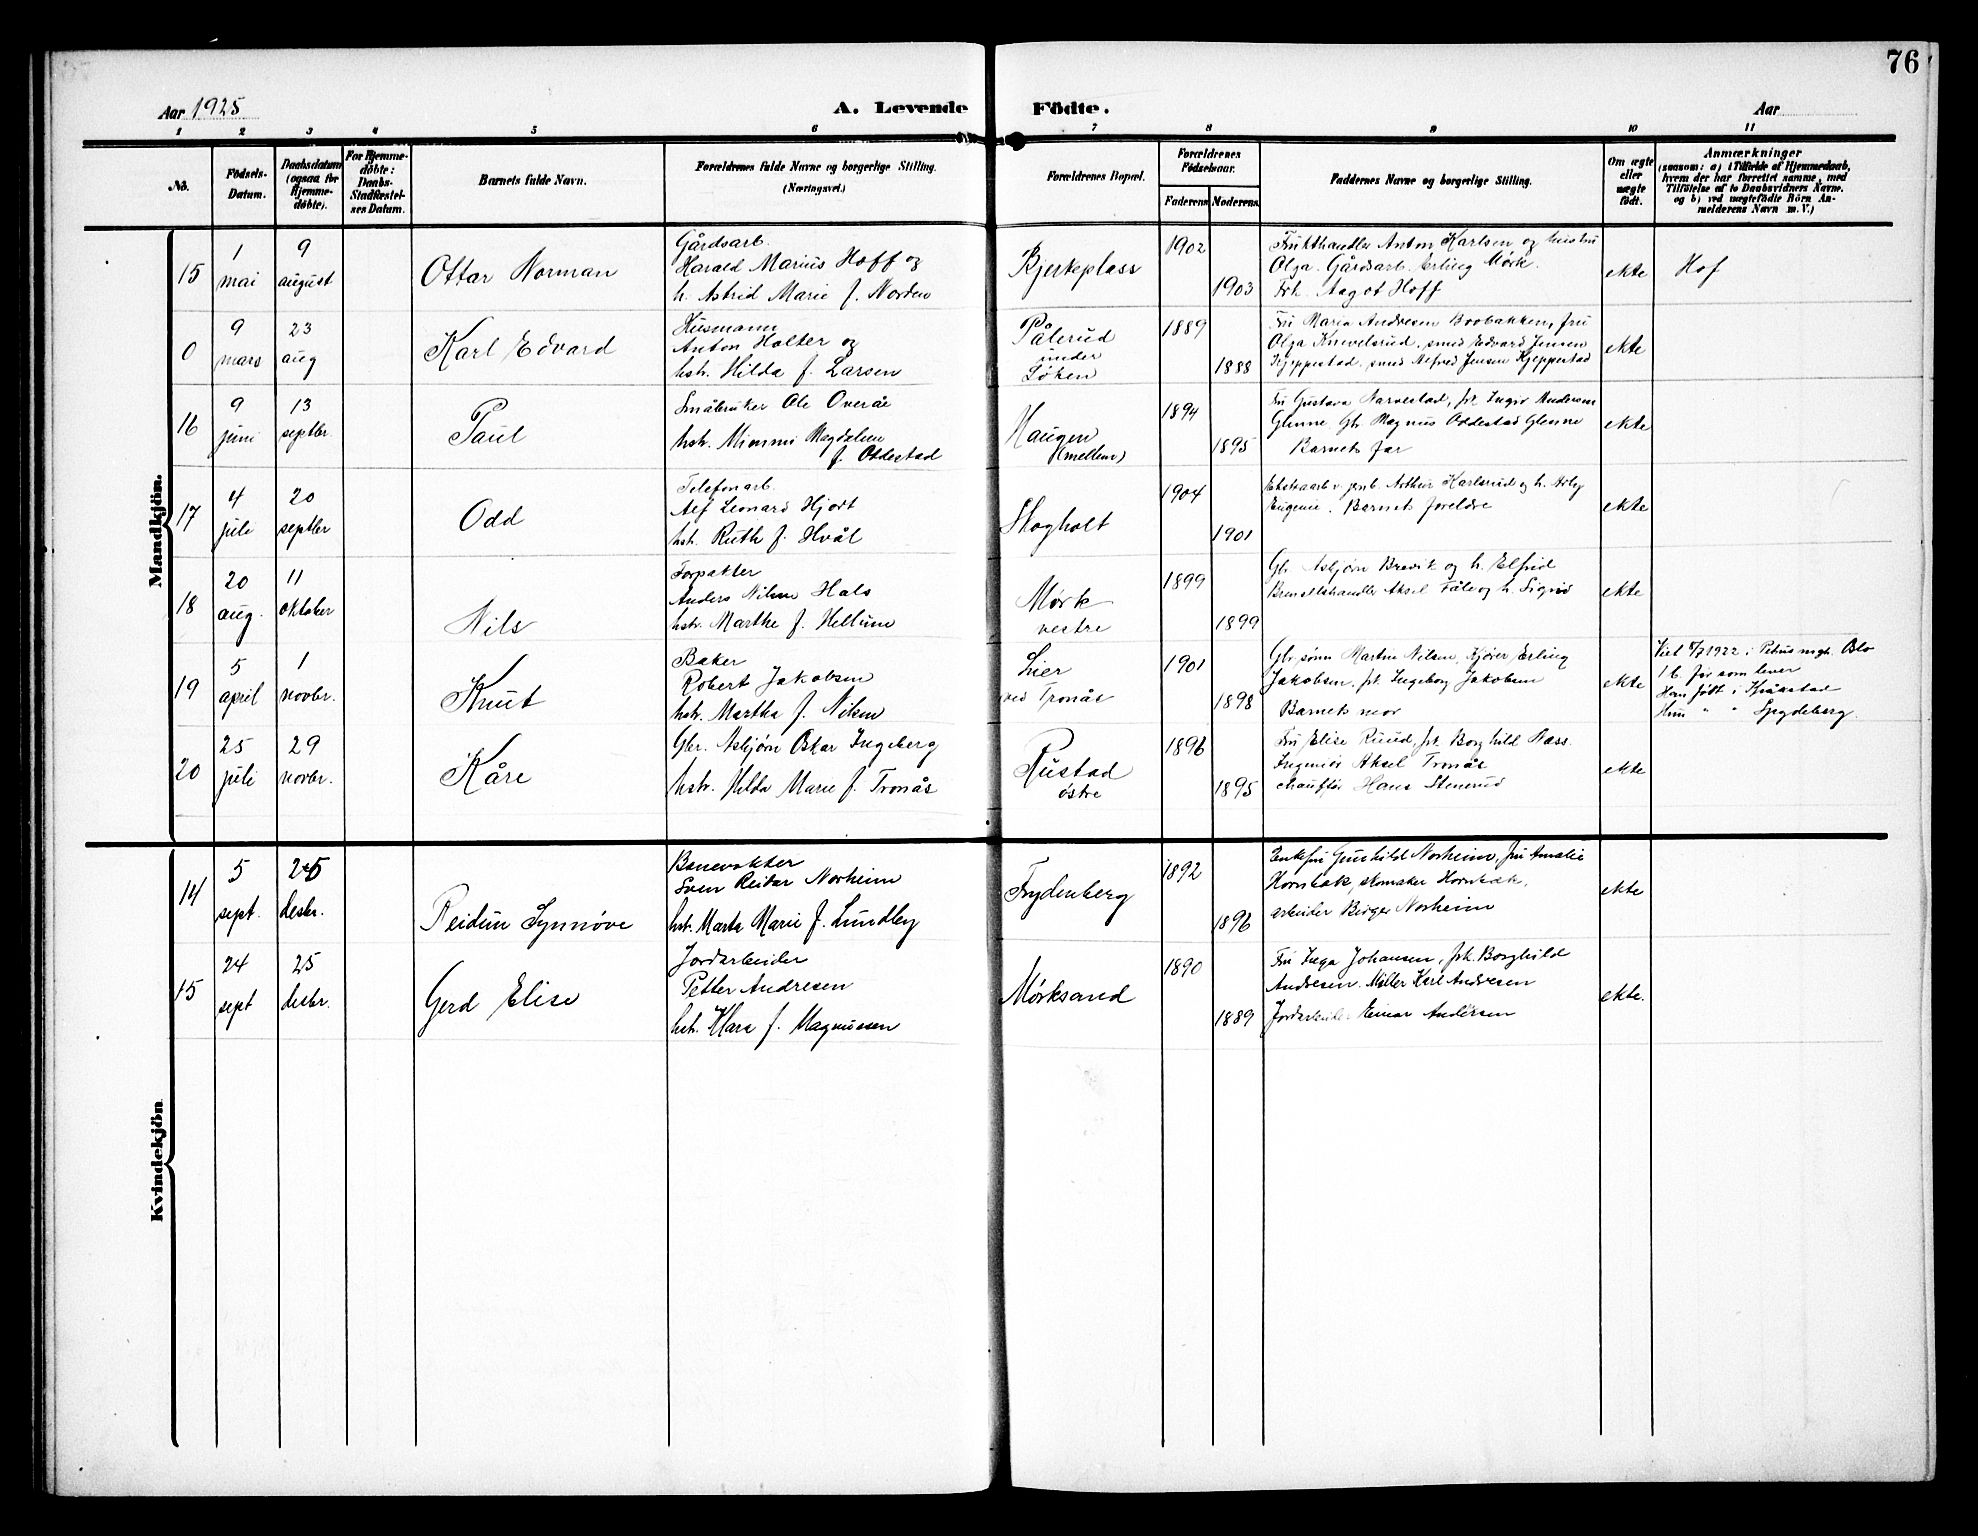 76
Aar 1925
A. Levende Födte.
Aar
1 2 3 4 5 6 7 8 9 10 11
No.
Födsels-Datum.
Daabsdatum (ogsaa for Hjemme-döbte).
For Hjemme-döbte: Daabs-Stadfæstel-ses Datum.
Barnets fulde Navn.
Forældrenes fulde Navne og borgerlige Stilling. (Næringsvei.)
Forældrenes Bopæl.
Forældrenes Födselsaar.
Faderens Moderens
Faddernes Navne og borgerlige Stilling.
Om ægte eller uægte födt.
Anmærkninger
(saasom: a) i Tilfælde af Hjemmedaab,
hvem der har forrettet samme, med
Tilföielse af to Daabsvidners Navne,
og b) ved uægtefödte Börn An-
melderens Navn m. V.)
Mandkjön.
15
1 mai
9 august
Ottar Norman
Gårdsarb.
Harald Marius Hoff og
h. Astrid Marie f. Norden
Bjerkeplass
1902
1903
Frukthandler Anton Karlsen og hustru
Olga. Gårdsarb. Erling Mørk.
Frk. Aagot Hoff
ekte
Hof
0
9 mars
23 aug
Karl Edvard
Husmann
Anton Holter og
hstr. Hilda f. Larsen
Pålerud
under
Løken
1889
1888
Fru Maria Andresen Boobakken, fru
Olga Knivelsrud, smed Edvard Jensen
Kjeppestad, smed Alfred Jensen Kjeppestad
ekte
16
9 juni
13 septbr.
Paul
Småbruker Ole Overåe
hstr. Mimmi Magdalene
f. Oddestad
Haugen
(mellem)
1894
1895
Fru Gustava Narvestad, frk Ingrid Andersen
Glenne Gbr. Magnus Oddestad Glenne
Barnets far
ekte
17
4 juli
20 septbr
Odd
Telefonarb.
Alf Leonard Hjort
hstr. Ruth f. Hvål
Skogholt
1904
1901
Ekstraarb v. jernb. Arthur Karlsrud og h.
Eugenie. Barnets foreldre
ekte
18
20 aug.
11 oktober
Nils
Forpakter
Anders Nilsen Hals
hstr. Marthe f. Hellum
Mørk
vestre
1899
1899
Gbr. Asbjørn Brevik og h. Elfrid
Aksel Fåle og h. Sigrid
ekte
19
5 april
1 novbr.
Knut
Baker
Robert Jakobsen
hstr. Martha f. Nilsen
Lier
ved Tronås
1901
1898
Gbr.sønn Martin Nilsen, Kjører Erling
Jakobsen, frk. Ingeborg Jakobsen
Barnets mor
ekte
1922 i Petrus mgh. Oslo
1 b. før som lever
Han født i Kråkstad
Hun " " Spydeberg.
20
25 juli
29 novbr.
Kåre
Gbr. Asbjørn Oskar Ingeberg
hstr. Hilda Marie f. Tronås
Rustad
østre
1896
1895
Fru Elise Ruud, frk. Borghild Næss.
Ingeniør Aksel Tronås
chauffør Hans Stenerud
ekte
Kvindekjön
14
5 sept.
25 desbr.
Reidun Synnøve
Banevokter
Sven Reidar Norheim
hst. Marta Marie f. Lundby
Frydenberg
1892
1896
Enkefru Gunhild Norheim, fru Amalie
Hornbæk, skomaker Hornbæk,
arbeider Birger Norheim
ekte
15
24 sept
25 desbr.
Gerd Elise
Jordarbeider
Petter Andresen
hst. Klara f. Magnussen
Mørksand
1890
1889
Fru Inga Johansen, frk. Borghild
Andresen. Møller Karl Andresen
Jordarbeider Einar Andersen
ekte.